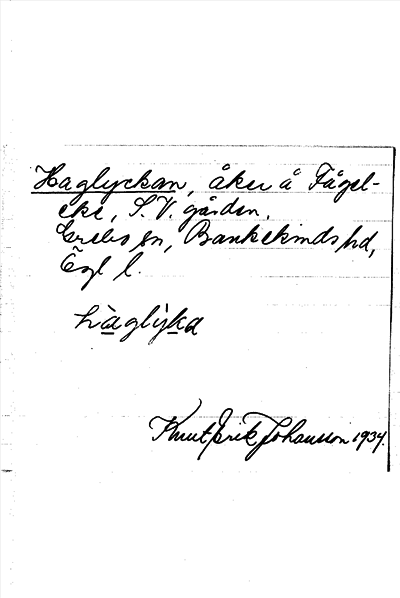 Haglyckan, åker å Fågel-
eke, S.V. gården,
Grebo sn, Bankekinds hd,
Ögl l.
hàglỳka
Knut Erik Johansson 1934.